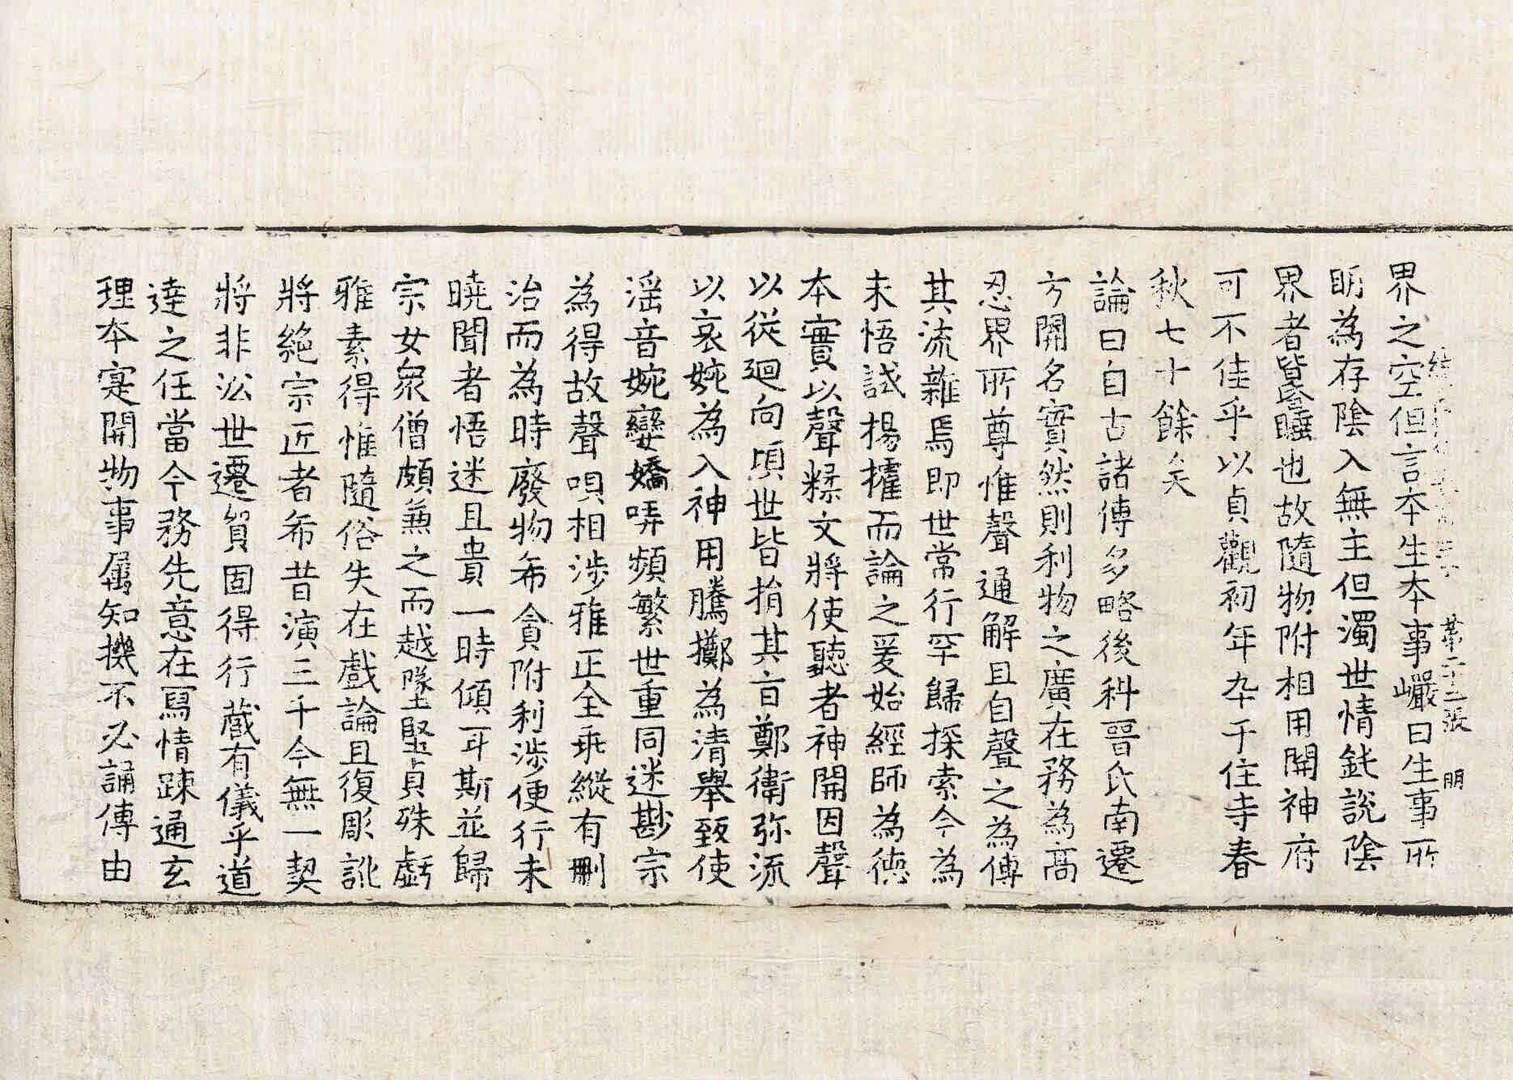 界之空但言本生本事巘曰生事所
眄為存陰入無主但濁世情鈍說陰
界者皆昏睡也故隨物附相用開神府
可不佳乎以貞觀初年卒于住寺春
秋七十餘矣
論曰自古諸傳多略後科晉氏南遷
方開名實然則利物之廣在務為高
忍界所尊惟聲通解且自聲之為傳
其流雜焉即世常行罕歸探索今為
未悟試揚搉而論之爰始經師為德
本實以聲糅文將使聽者神開因聲
以從迴向頃世皆捐其旨鄭衛弥流
以哀婉為入神用騰擲為清舉致使
淫音婉孌嬌哢頻繁世重同迷尠宗
為得故聲唄相涉雅正全乖縱有刪
治而為時廢物希貪附利涉便行未
曉聞者悟迷且貴一時傾耳斯並歸
宗女眾僧頗兼之而越墜堅貞殊虧
雅素得惟隨俗失在戲論且復彫訛
將絕宗近者希昔演三千今無一契
將非沿世遷貿固得行藏有儀乎道
達之任當今務先意在寫情疎通玄
理本寔開物事屬知機不必誦傳由
第二十二張 明